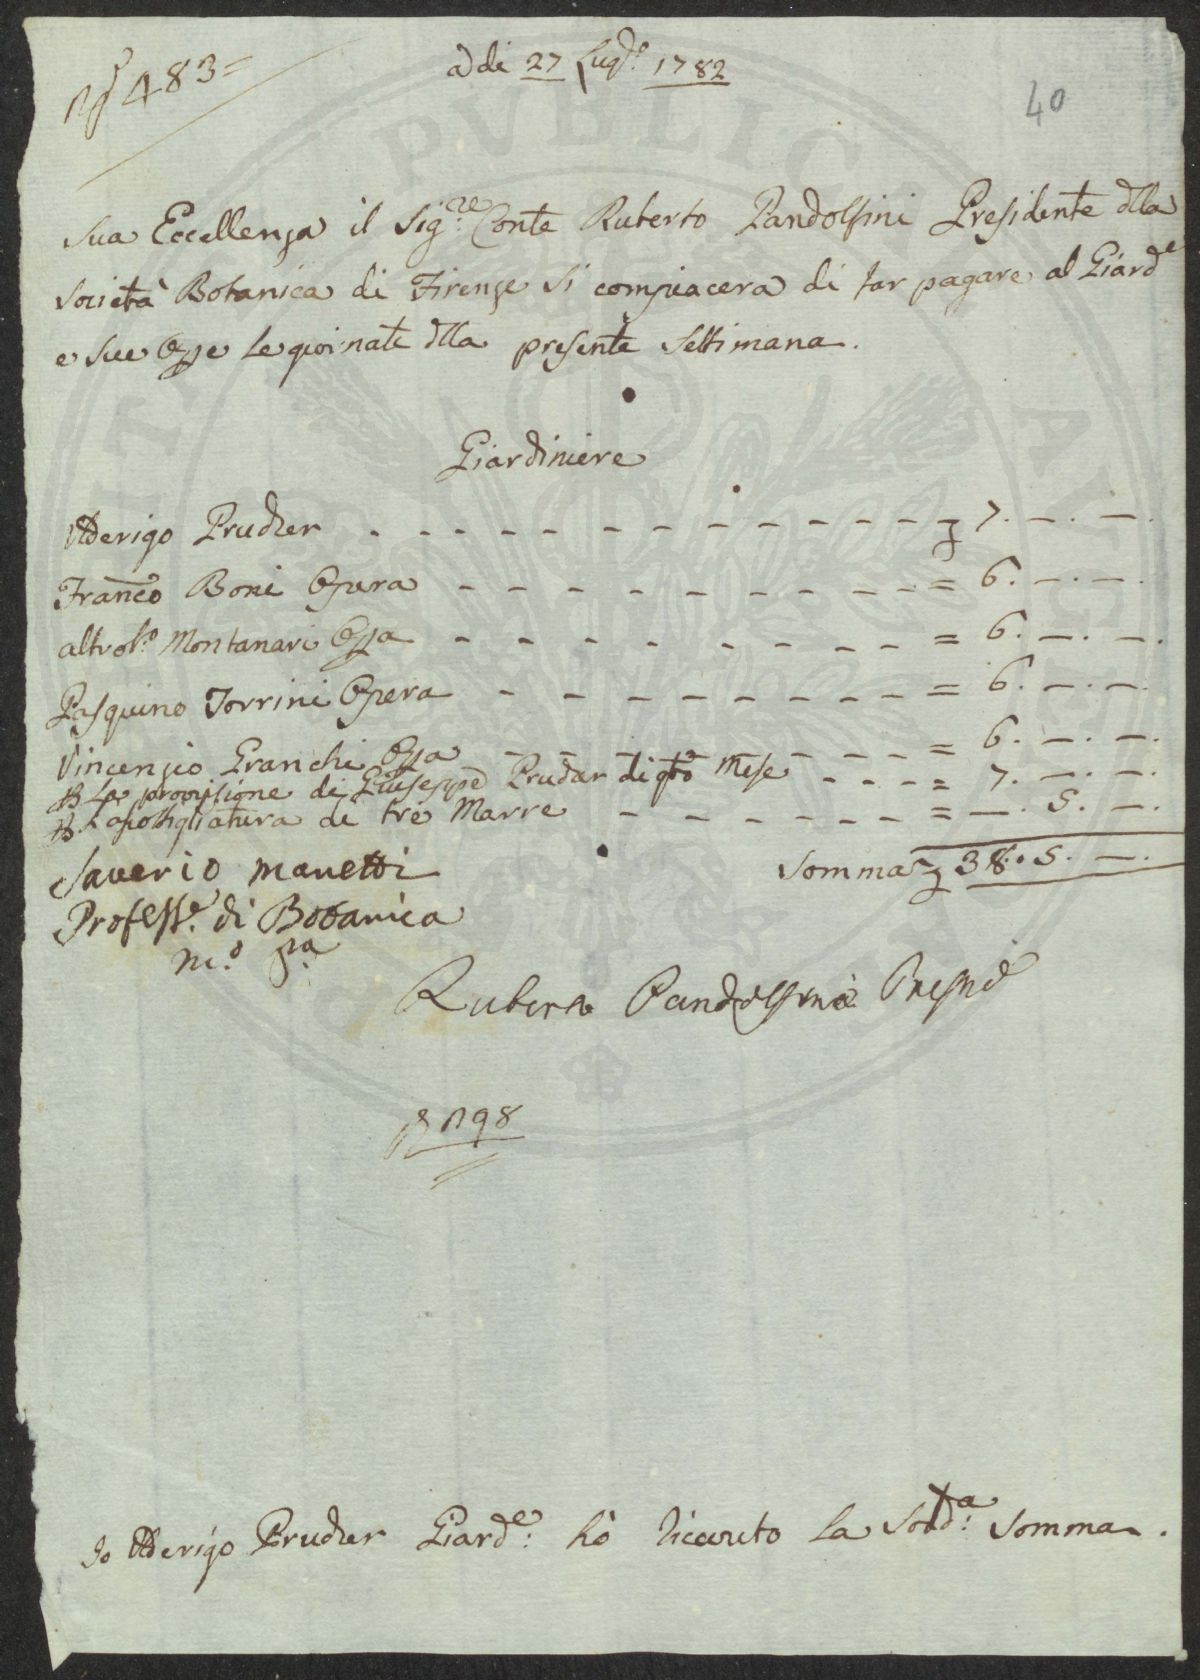 N.º 483=
a di 27 Lug.º 1782
40
Sua Eccellenza il Sig.re Conte Ruberto Pandolfini Presidente dlla
Società Botanica di Firenze si compiacera di far pagare al Giard.e
e sue Oppe le giornate dlla presente Settimana.
Giardiniere
Aderigo Prucker - - - - - - - - - - - - 7. —. —.
Franco Boni Opera - - - - - - - - - = 6. —. —.
Montanari Oppa - - - - - - - - = 6. —. —.
Pasquino Torrini Opera - - - - - - - = 6. —. —.
Vincenzio Granchi Oppa - - - - - - - = 6. —. —.
La provvisione di Giuseppe Prucker di qto Mese - - - = 7. —. —.
di tre Marre - - - - - - = —. 5. —.
Somma 38. 5. —.
Saverio Manetti
Profess.e di Botanica
m.o pa
Ruberto Pandolfini Preside
N 98
Io Aderigo Prucker Giard.e hò riceuto la Sod.a Somma.
PVBLIC